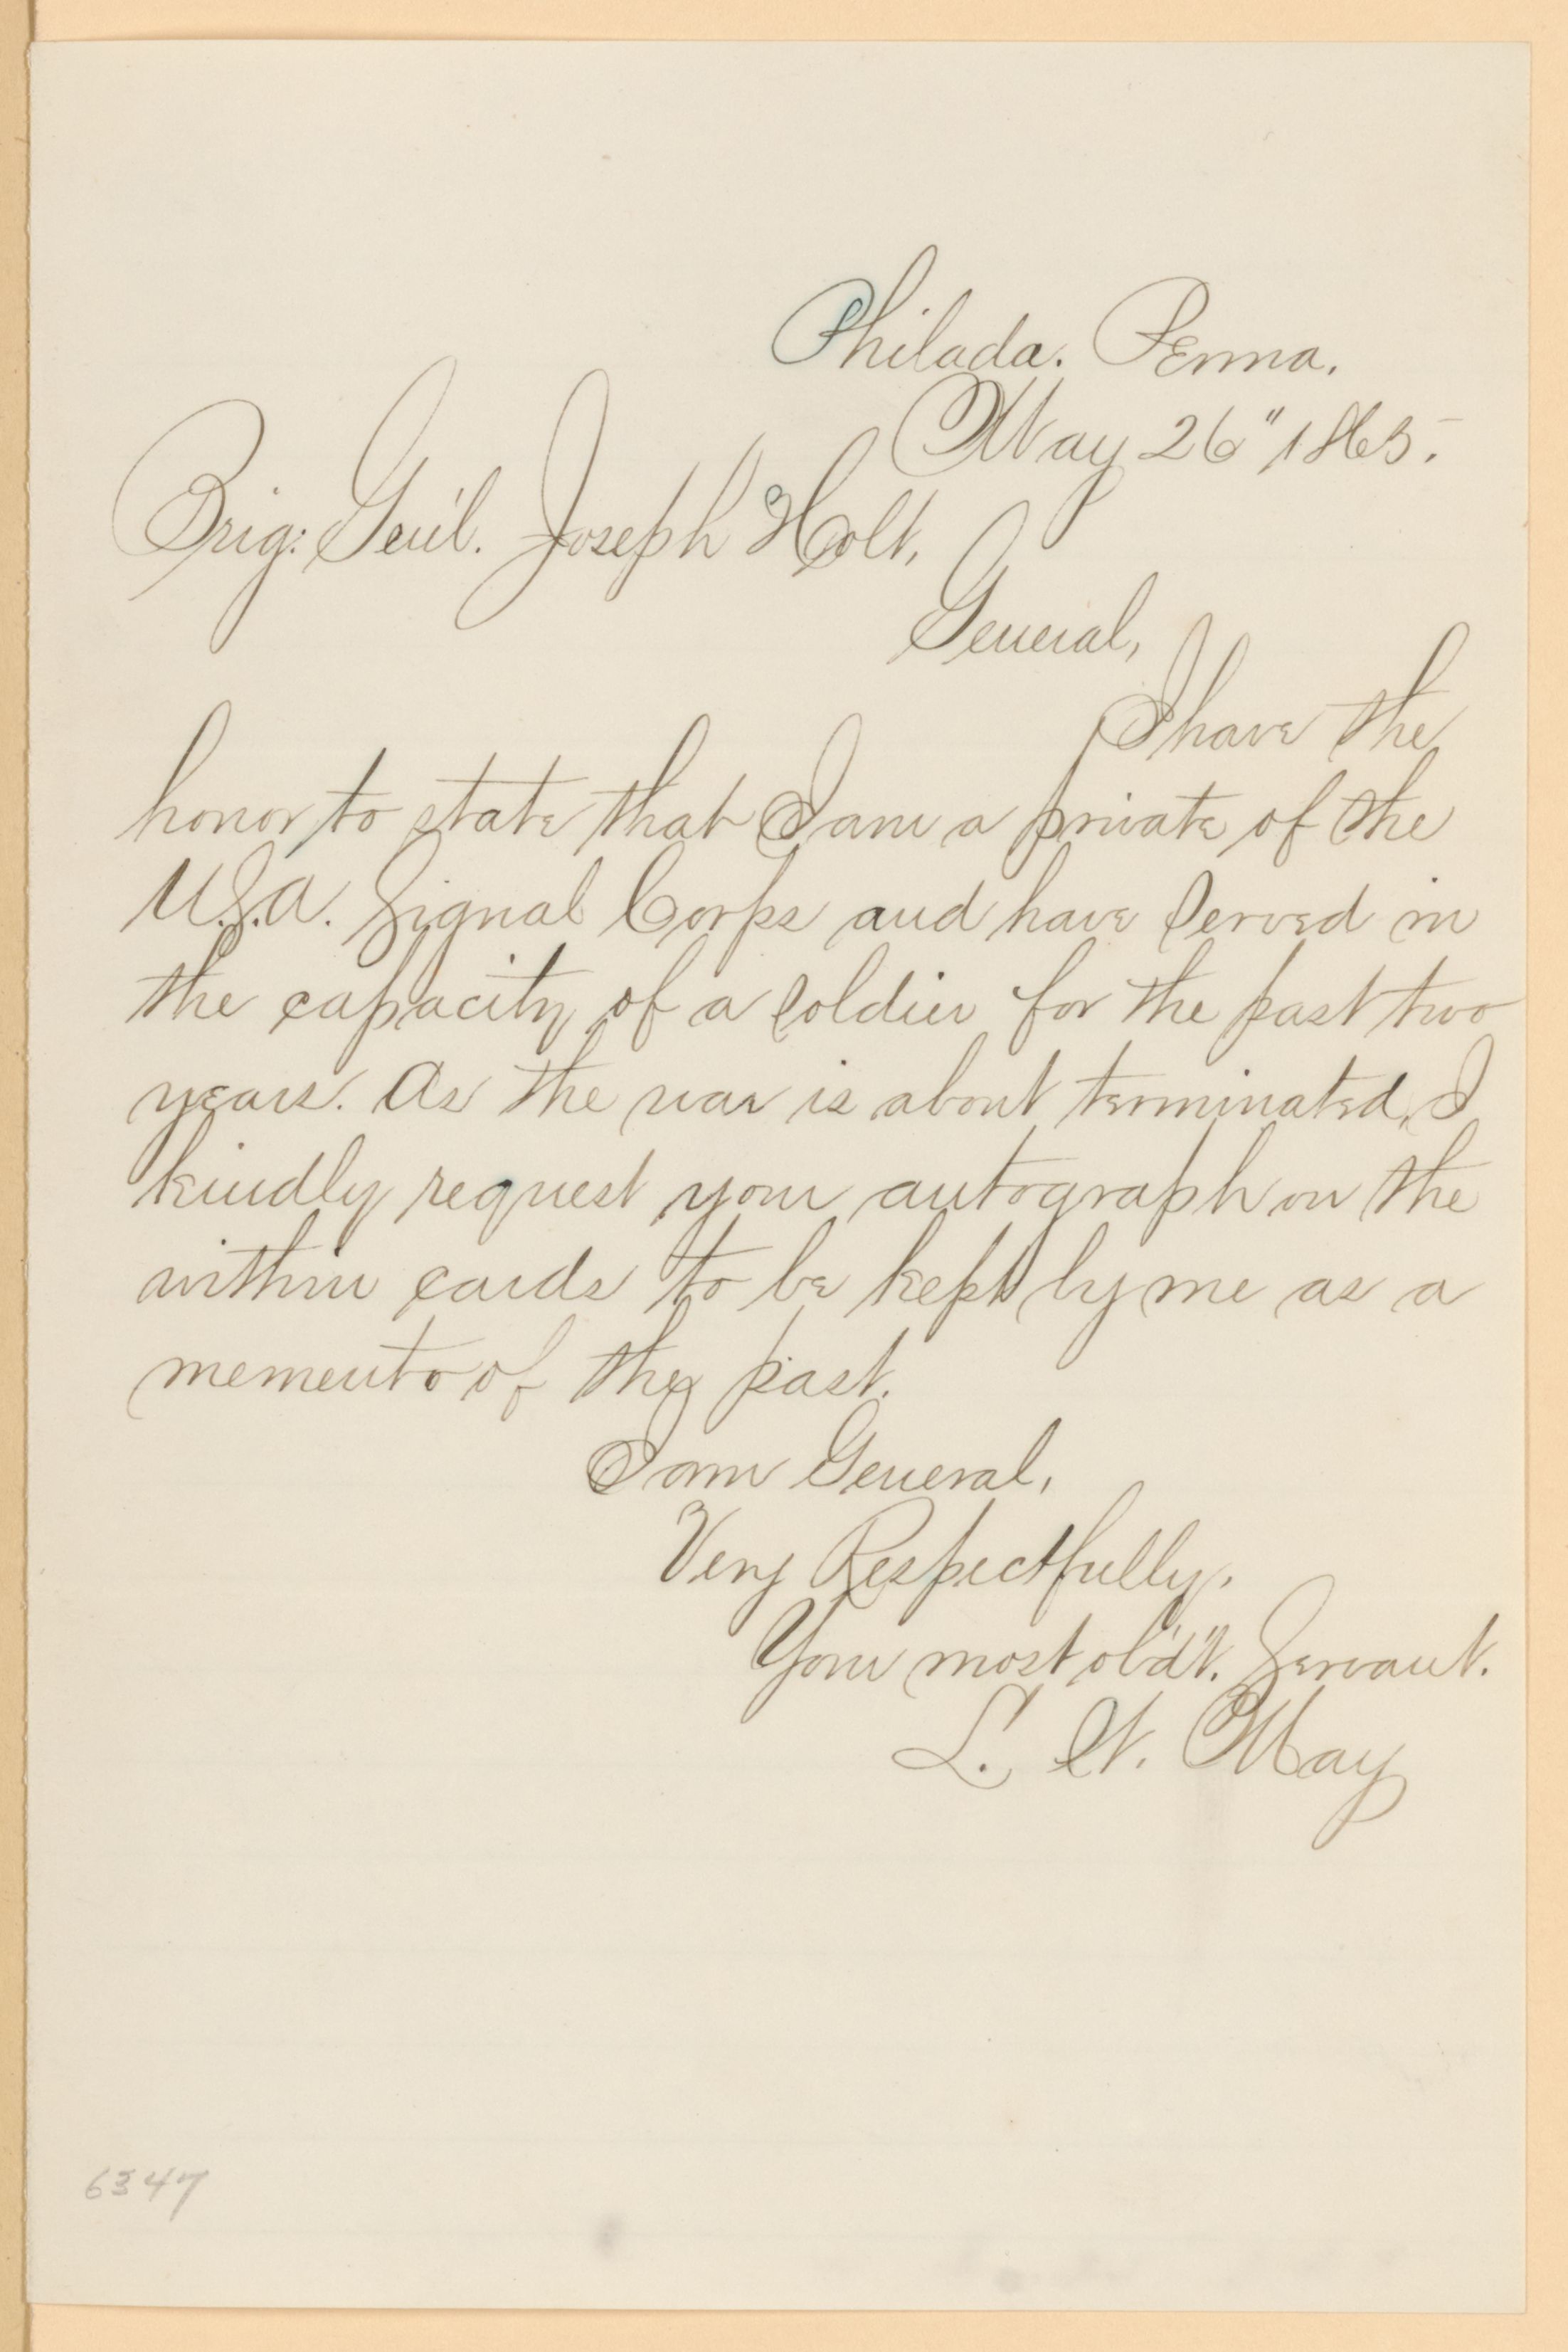 Philada. Penna.
May 26" 1865.
Brig: Gen'l. Joseph Holt,
General,
I have the
honor to state that I am a private of the
U.S.A. Signal Corps and have served in
the capacity of a soldier for the past two
years. As the war is about terminated, I
kindly request your autograph on the
within cards to be kept by me as a
memento of the past.
I am General,
Very Respectfully,
Your most ob'd't. Servant.
L. W. May
6347